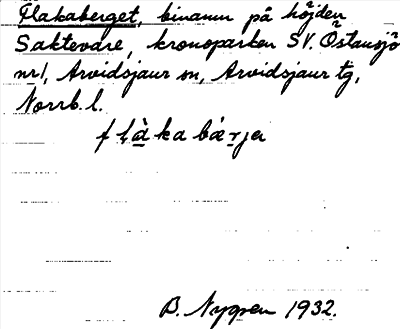 Flakaberget, binamn på höjden
Saktevare, kronoparken SV. Östansjö
nr 1, Arvidsjaur sn, Arvidsjaur tg,
Norrb. l.
B. Nygren 1932.